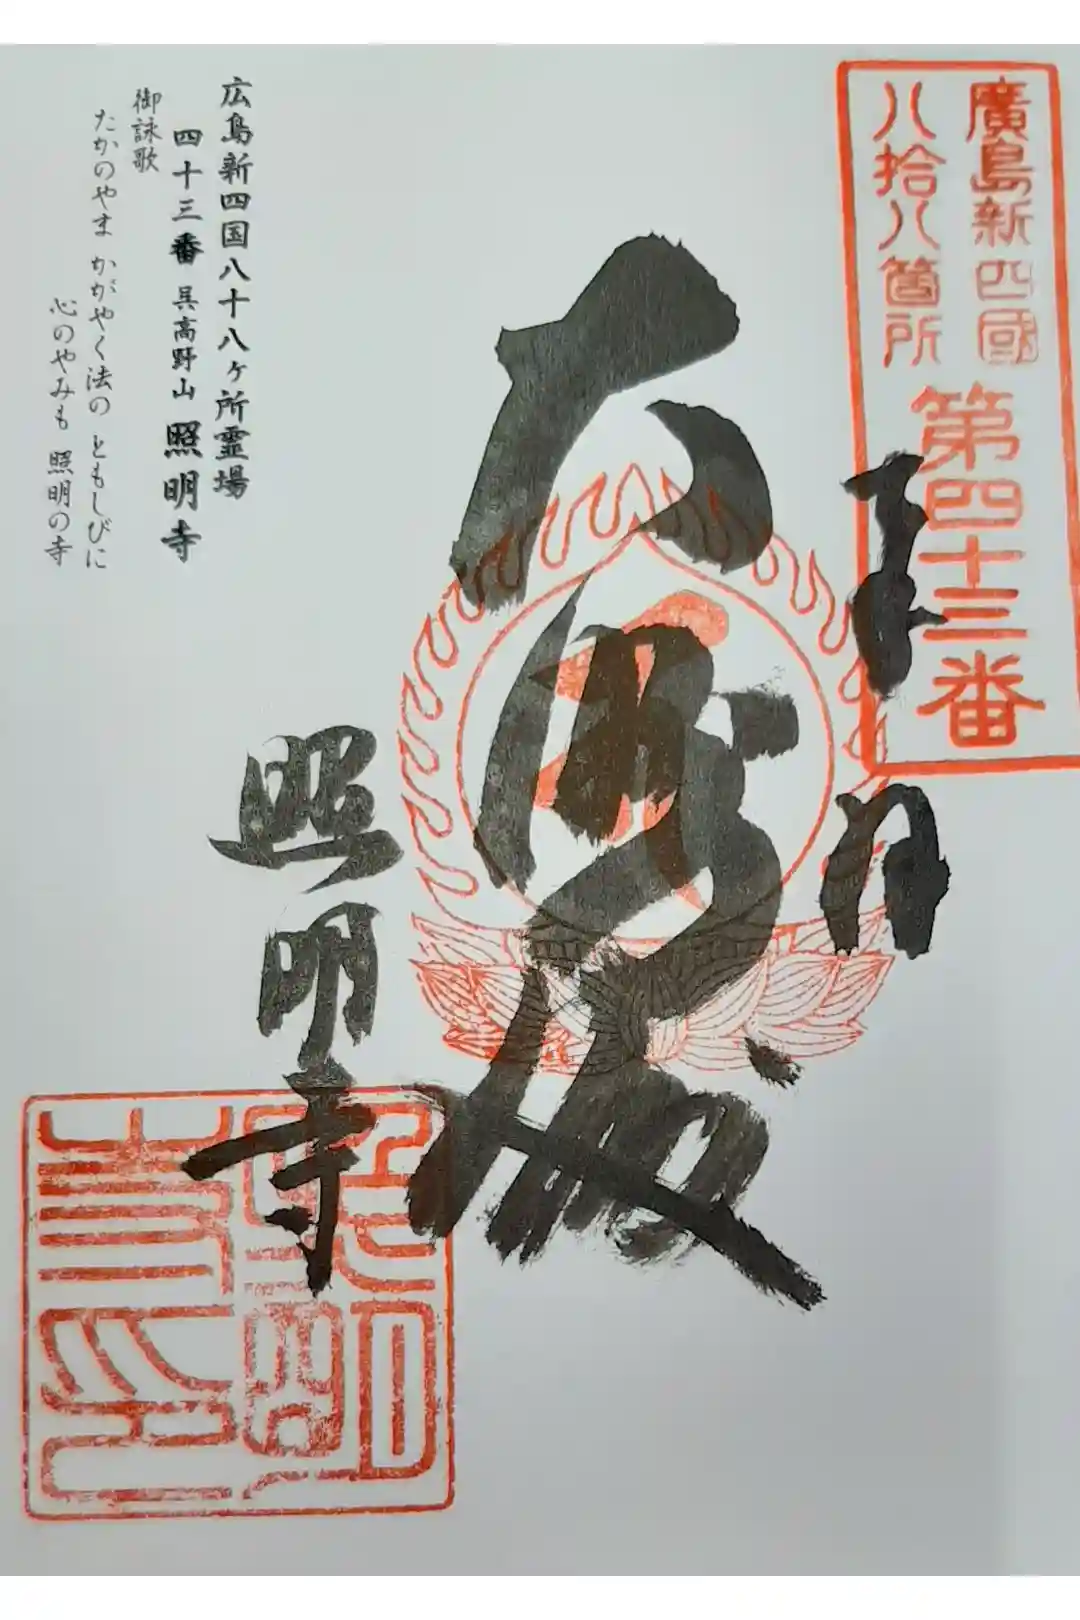 廣島新四國
八拾八箇所
第四十三番
奉
拝
照明寺
広島新四国八十八ヶ所霊場
四十三番 呉高野山 照明寺
御詠歌
たかのやま かがやく法の ともしびに
心のやみも 照明の寺
照明寺印